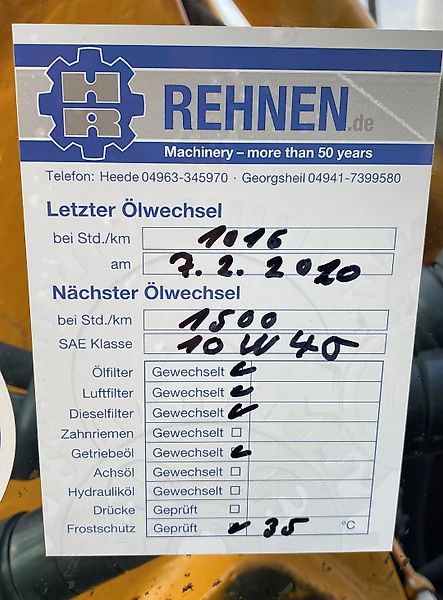 HR REHNEN.de
Machinery – more than 50 years
Telefon: Heede 04963-345970 · Georgsheil 04941-7399580
Letzter Ölwechsel
bei Std./km 1016
am 7.2.2020
Nächster Ölwechsel
bei Std./km 1500
SAE Klasse 10W40
Ölfilter Gewechselt ✓
Luftfilter Gewechselt ✓
Dieselfilter Gewechselt ✓
Zahnriemen Gewechselt □
Getriebeöl Gewechselt ✓
Achsöl Gewechselt □
Hydrauliköl Gewechselt □
Drücke Geprüft □
Frostschutz Geprüft ✓ 35 °C